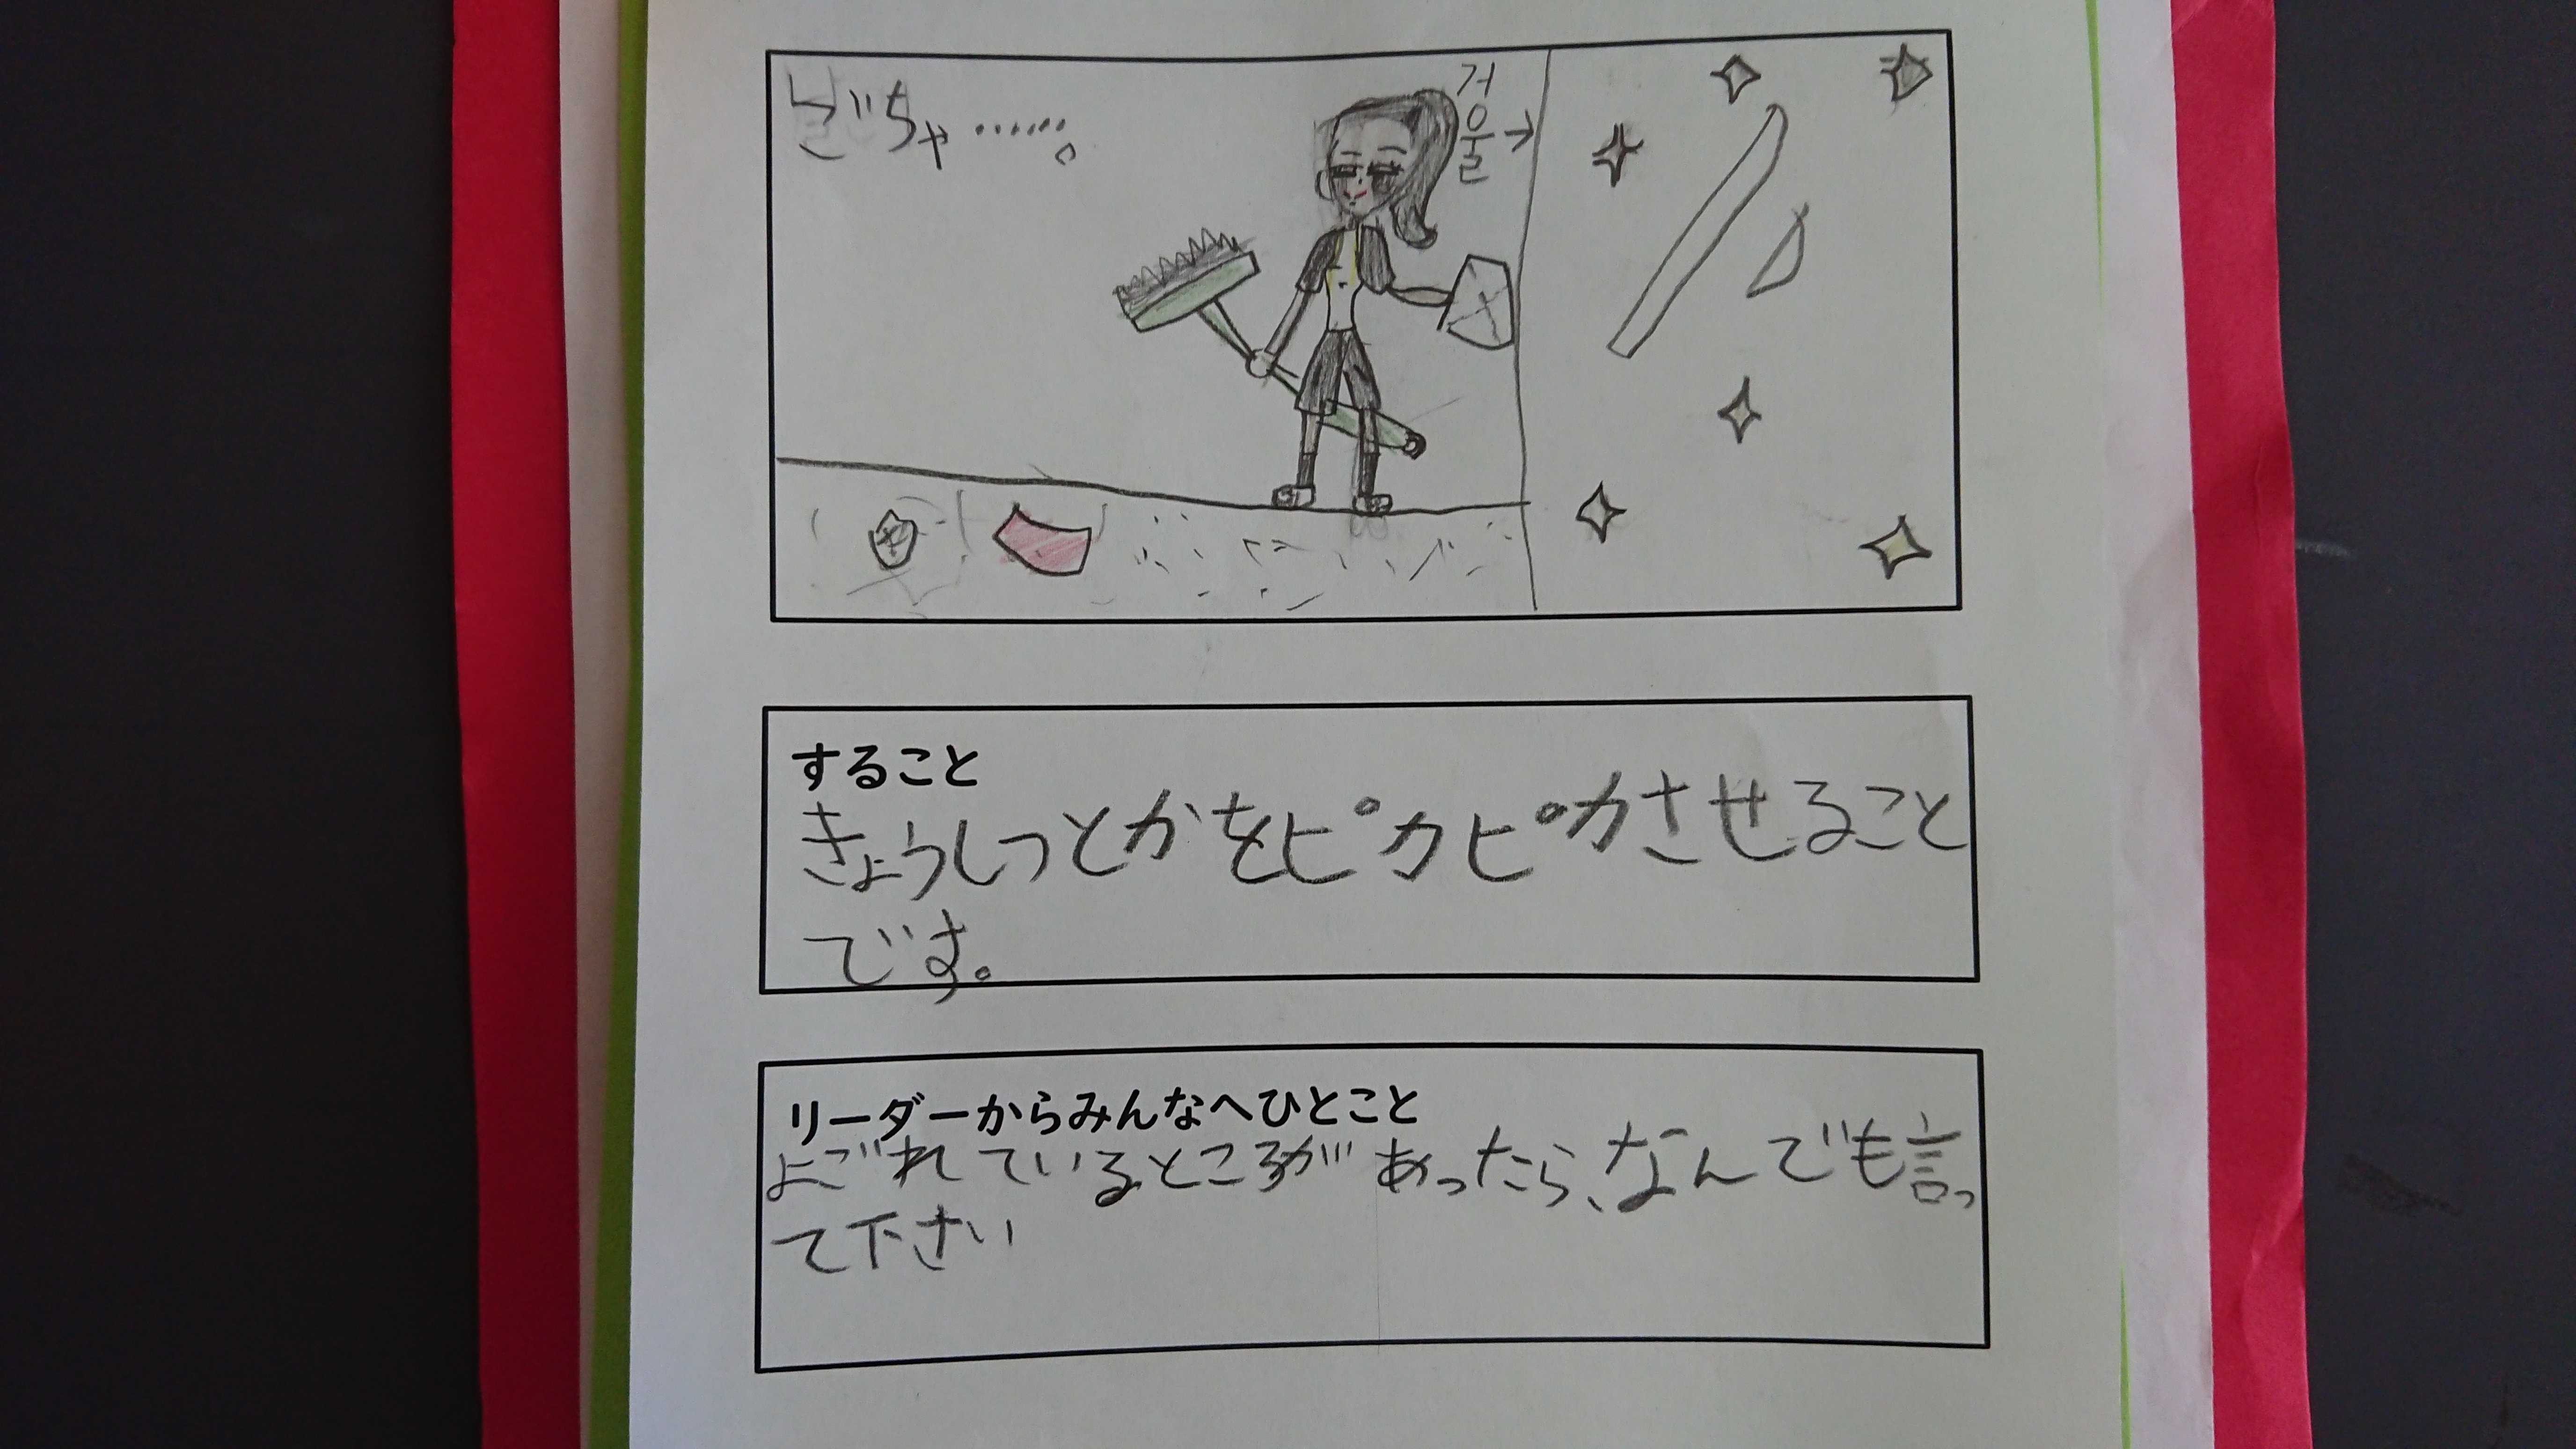 ごちゃ……。
거울→
すること
きょうしつとかをピカピカさせること
です。
リーダーからみんなへひとこと
よごれているところがあったら、なんでも言っ
て下さい